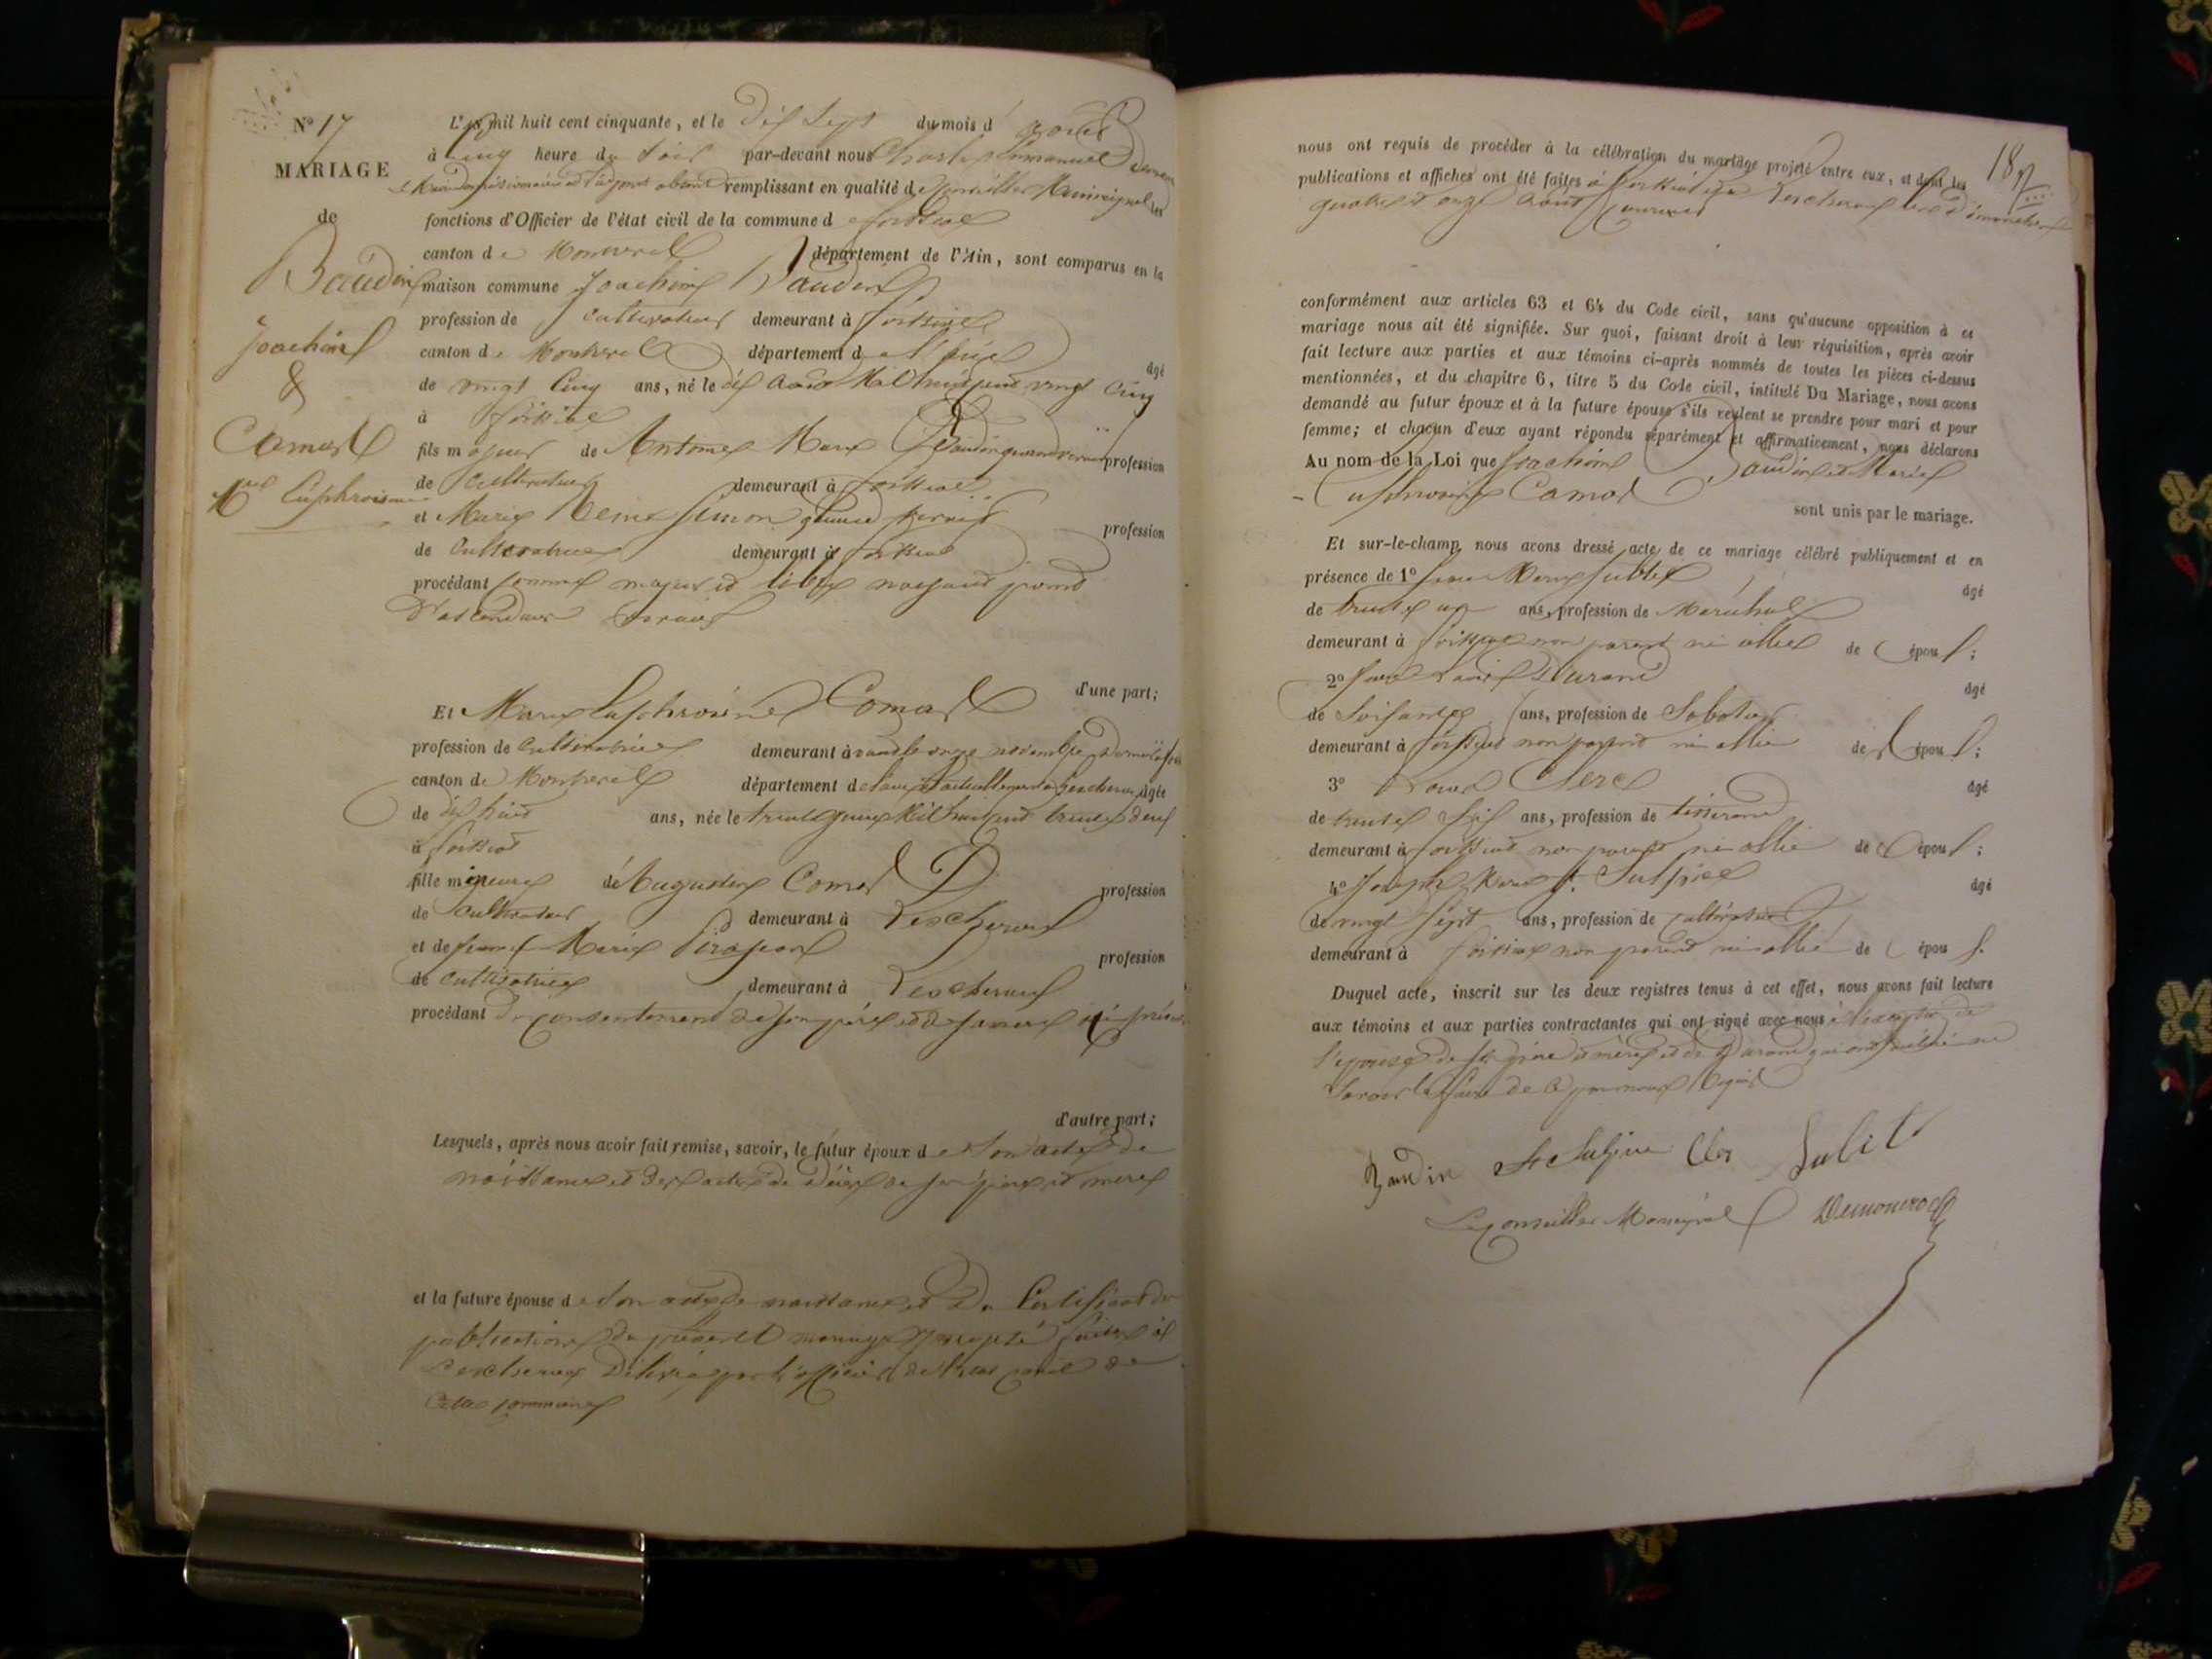 N° 17
MARIAGE
de
Baudin
Joachim
&
Camas
Mie Euphroisine
L'an mil huit cent cinquante, et le dix sept du mois d'août
à cinq heure du soir par-devant nous Charles Emmanuel
remplissant en qualité de Conseiller Municipal les
fonctions d'Officier de l'état civil de la commune de foissiat
canton de Montrevel département de l'Ain, sont comparus en la
maison commune Joachim Baudin
profession de cultivateur demeurant à foissiat
canton de Montrevel département de l'ain âgé
de vingt cinq ans, né le dix août Mil huit cent vingt cinq
à foissiat
fils majeur de Antoine Marie Baudin quand vivait profession
de cultivateur demeurant à foissiat
et Marie Reine Simon quand vivait profession
de cultivatrice demeurant à foissiat
procédant comme majeur et libre n'ayant point
d'ascendans
d'une part;
Et Marie Euphroisine Camas
profession de cultivatrice demeurant à avant le onze novembre
canton de Montrevel département de l'ain et actuellement à Lescheroux âgée
de dix huit ans, née le trente Mil huit cent trente deux
à foissiat
fille mineure de Augustin Camas profession
de cultivateur demeurant à Lescheroux
et de Jeanne Marie profession
de cultivatrice demeurant à Lescheroux
procédant du consentement de son père et de sa mère
d'autre part;
Lesquels, après nous avoir fait remise, savoir, le futur époux de son acte de
naissance et des actes de décès de ses père et mère
et la future épouse de son acte de naissance et du Certificat de
publication du présent mariage projeté faites à
Lescheroux délivré par l'officier de l'état civil de
cette commune
18
nous ont requis de procéder à la célébration du mariage projeté entre eux, et dont les
publications et affiches ont été faites à foissiat et à Lescheroux les dimanches
quatre et onze août courant
conformément aux articles 63 et 64 du Code civil, sans qu'aucune opposition à ce
mariage nous ait été signifiée. Sur quoi, faisant droit à leur réquisition, après avoir
fait lecture aux parties et aux témoins ci-après nommés de toutes les pièces ci-dessus
mentionnées, et du chapitre 6, titre 5 du Code civil, intitulé Du Mariage, nous avons
demandé au futur époux et à la future épouse s'ils veulent se prendre pour mari et pour
femme; et chacun d'eux ayant répondu séparément et affirmativement, nous déclarons
Au nom de la Loi que Joachim Baudin et Marie
Euphroisine Camas
sont unis par le mariage.
Et sur-le-champ nous avons dressé acte de ce mariage célébré publiquement et en
présence de 1° Marie âgé
de trente ans, profession de Maréchal
demeurant à foissiat non parent ni allié de époux;
2° Durand âgé
de Soixante ans, profession de Sabotier
demeurant à foissiat non parent ni allié des époux;
3° Clerc âgé
de trente six ans, profession de tisserand
demeurant à foissiat non parent ni allié de époux;
4° Joseph Marie St. Sulpice âgé
de vingt sept ans, profession de cultivateur
demeurant à foissiat non parent ni allié de époux.
Duquel acte, inscrit sur les deux registres tenus à cet effet, nous avons fait lecture
aux témoins et aux parties contractantes qui ont signé avec nous à l'exception de
l'épouse de ses père et mère et de Durand qui ont déclaré ne
savoir le faire de ce par nous requis
Baudin St Sulpice Clerc
Le Conseiller Municipal